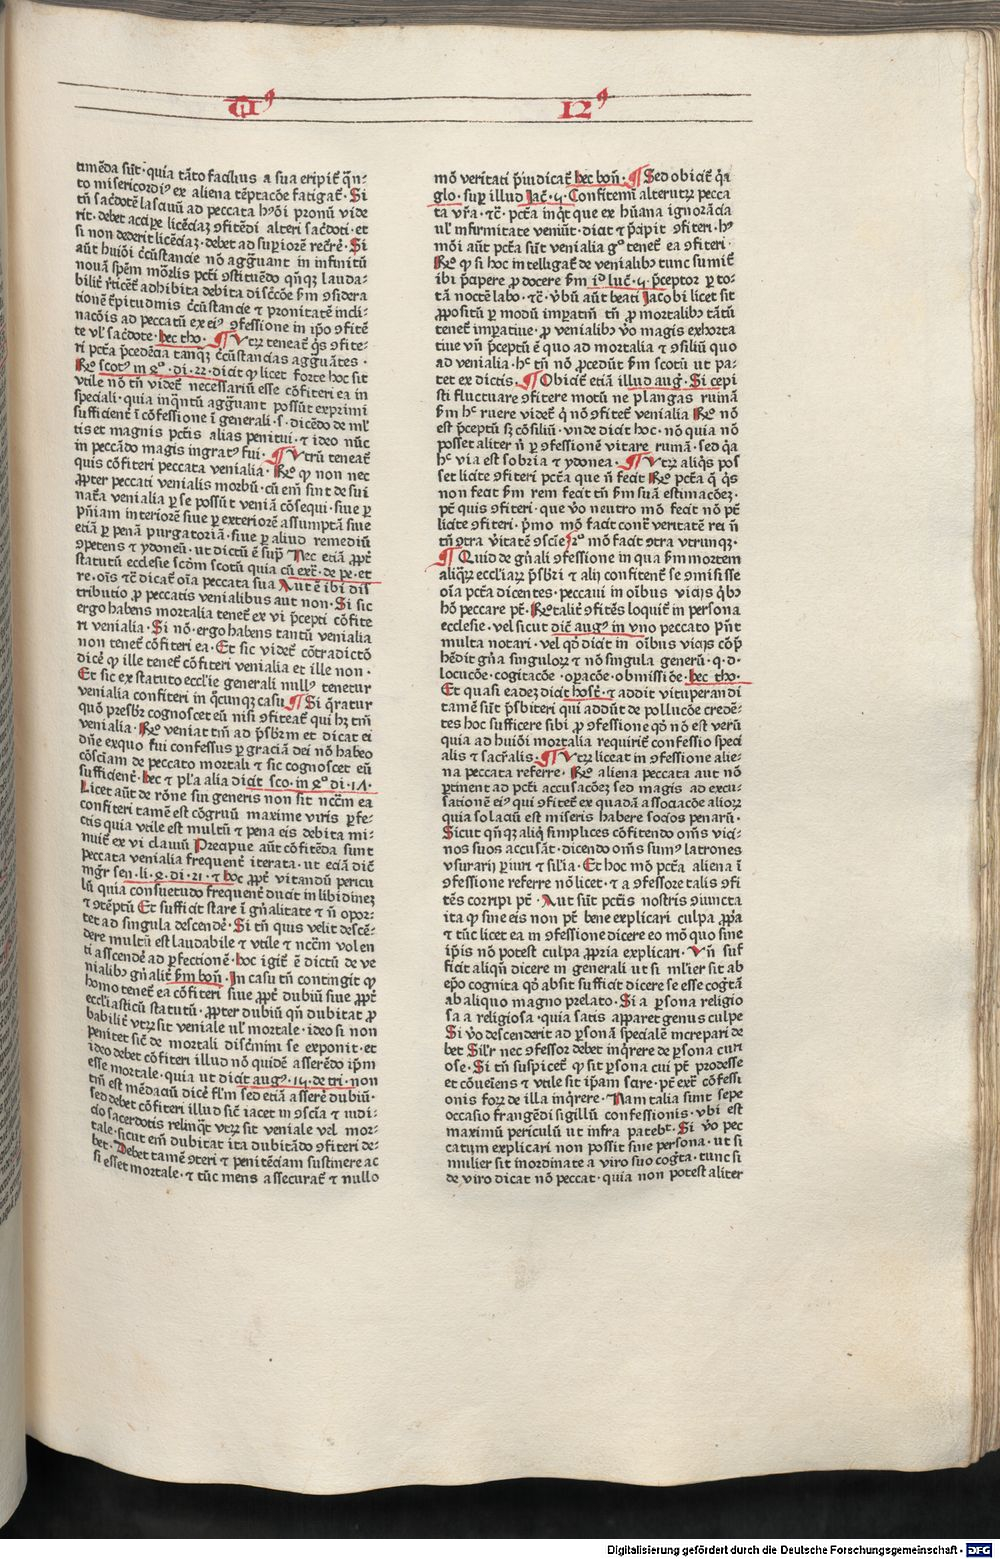 timēda sūt · quia tāto facilius a sua eripit̄ q̄n⸗
to misericordiꝰ ex aliena tēptacōe fatigat̄ · Si
tn̄ sac̄dotē lasciuū ad peccata hmōi pronū vide
rit · debet accipe licēciaꝫ ꝯfitēdi alteri sac̄doti · et
si non dederit licēciaꝫ · debet ad suꝑiorē recr̄rē · Si
aūt huiōi c̄cūstancie nō agg̃uant in infinitū
nouā spēm mōrlis pcti ꝯstituēdo
bilit̄ adhibita debita discc̄oe
tionē c̄cūstancie ⁊ pronitatē incli⸗
nacōis ad peccatū ex eiꝰ ꝯfessione in ip̄o ꝯfitē
te vl' sac̄dote · hec tho · ¶ Vtꝝ teneat̄ q̄s ꝯfite⸗
ri pctā p̄cedēcia tanqꝫ c̄cūstancias agg̃uātes ·
Rº scotꝰ in 4º · di · 22 · dicit ꝙ licet forte hoc sit
vtile nō tn̄ videt̄ necessariū esse cōfiteri ea in
speciali · quia inq̄ntū agg̃uant possūt exprimi
sufficient̄ ī cōfessione ī generali · s · dicēdo de ml'
tis et magnis pctis alias penitui · ⁊ ideo nūc
in peccādo magis ingratꝰ fui · ¶ Vtrū teneat̄
quis cōfiteri peccata venialia · Rº ꝙ non nec
ꝓpter peccati venialis morbū · cū em̄ sint de sui
nat̄a venialia ꝑ se possūt veniā cōsequi · siue ꝑ
pn̄iam interiorē siue ꝑ exteriorē assumptā siue
etiā ꝑ penā purgatoriā · siue ꝑ aliud remediū
ꝯpetens ⁊ ydoneū · ut dictū ē sup̄ Nec etiā ꝓpt̄
statutū ecclesie scdm̄ scotū quia cū ext̄ · de pe · et
re · oīs ⁊c̄ dicat̄ oīa peccata sua Aut ē ibi dis
tributio ꝓ peccatis venialibus aut non · Si sic
ergo habens mortalia tenet̄ ex vi p̄cepti cōfite
ri venialia · Si nō · ergo habens tantū venialia
non tenet̄ cōfiteri ea · Et sic videt̄ cōtradictō
dicē ꝙ ille tenet̄ cōfiteri venialia et ille non ·
Et sic ex statuto eccl'ie generali nullꝰ tenetur
venialia confiteri in q̄cunqꝫ casu ¶ Si q̄ratur
quō presbr̄ cognoscet eū nisi ꝯfiteat̄ qui hꝫ tm̄
venialia · Rº veniat tm̄ ad p̄sbr̄m et dicat ei
dn̄e exquo fui confessus ꝑ graciā dei nō habeo
cōsciam de peccato mortali ⁊ sic cognoscet eū
sufficient̄ · hec ⁊ pl'a alia dicit sco · in 4º di · 17 ·
Licet aūt de rōne sui generis non sit nccm̄ ea
confiteri tamē est cōgruū maxime viris ꝑfe⸗
ctis quia vtile est multū ⁊ pena eis debita mi⸗
nuit̄ ex vi clauiū Precipue aūt cōfitēda sunt
peccata venialia frequent̄ iterata · ut eciā dic̄
mgr̄ sen · li · 4 · di · 21 · ⁊ hoc ꝓpt̄ vitandū pericu
lū quia consuetudo frequent̄ ducit in libidineꝫ
⁊ ꝯtēptū Et sufficit stare ī gn̄alitate ⁊ n̄ opor⸗
tet ad singula descendē · Si tn̄ quis velit descē⸗
dere multū est laudabile ⁊ vtile ⁊ nccm̄ volen
ti asscendē ad ꝑfectionē · hoc igit̄ ē dictū de ve
nialibꝰ gn̄alit̄ ẜm bon̄ · In casu tn̄ contingit ꝙ
homo tenet̄ ea cōfiteri siue ꝓpt̄ dubiū siue ꝓpt̄
eccl'iasticū statutū · ꝓpter dubiū qn̄ dubitat ꝓ
babilit̄ vtꝝ sit veniale ul' mortale · ideo si non
penitet sic̄ de mortali disc̄mini se exponit · et
ideo debet cōfiteri illud nō quidē asserēdo ip̄m
esse mortale · quia ut dicit augꝰ · 15 · de tri · non
tm̄ est mēdaciū dicē fl'm sed etiā asserē dubiū ·
sed debet cōfiteri illud sic̄ iacet in ꝯscīa ⁊ iudi⸗
cio sacerdotis relinqt̄ vtꝝ sit veniale vel mor⸗
tale · sicut em̄ dubitat ita dubitādo ꝯfiteri de⸗
bet · Debet tamē ꝯteri ⁊ penitēciam sustinere ac
si esset mortale · ⁊ tūc mens assecurat̄ ⁊ nullo
mō veritati p̄iudicat̄ hec bon̄ · ¶ Sed obicit̄ q̄a
glo · suꝑ illud Jac̄ · 5 · Confitemī alterutꝝ pecca
ta vr̄a · ⁊c̄ · pctā inq̄t que ex hūana ignorācia
ul' infirmitate veniūt · dicit ⁊ p̄cipit ꝯfiteri · hꝰ
mōi aūt pctā sūt venialia gº tenet̄ ea ꝯfiteri ·
Rº ꝙ si hoc intelligat̄ de venialibꝰ tunc sumit̄
ibi p̄cipere ꝓ docere ẜm id luc̄ · 5 · p̄ceptor ꝑ to⸗
tā noctē labo · ⁊c̄ · v̄bū aūt beati Jacobi licet sit
ꝓpositū ꝑ modū imꝑatiu̅ tn̄ ꝓ mortalibꝰ tātū
tenet̄ imꝑatiue · ꝓ venialibꝰ v̄o magis exhorta
tiue vn̄ p̄ceptū ē quo ad mortalia ⁊ ꝯsiliū quo
ad venialia · hc̄ tn̄ nō ꝓcedūt ẜm scotū ut pa⸗
tet ex dictis · ¶ Obicit̄ etiā illud auḡ · Si cepi
sti fluctuare ꝯfitere motū ne plangas ruinā
ẜm hc̄ ruere videt̄ q̄ nō ꝯfitet̄ venialia Rº nō
est p̄ceptū sꝫ cōsiliū · vnde dicit hoc · nō quia nō
posset aliter n̄ ꝑ ꝯfessionē vitare ruinā · sed q̄a
hc̄ via est sobria ⁊ ydonea · ¶ Vtꝝ aliq̄s pos
set licite ꝯfiteri pctā que n̄ fecit Rº pctā q̄ q̄s
non fecit ẜm rem fecit tn̄ ẜm suā estimacōeꝫ ·
pt̄ quis ꝯfiteri · que v̄o neutro mō fecit nō pt̄
licite ꝯfiteri · p̄mo mō facit cont̄ veritatē rei n̄
tn̄ ꝯtra v̄itatē ꝯsciē 2º mō facit ꝯtra vtrunqꝫ ·
¶ Quid de gn̄ali ꝯfessione in qua ẜm mortem
aliqꝝ eccl'iaꝝ p̄sbr̄i ⁊ alij confitent̄ se ꝯmisisse
oīa pctā dicentes · peccaui in oībus vicijs q̄bꝰ
hō peccare pt̄ · Rº talit̄ ꝯfitēs loquit̄ in persona
ecclesie · vel sicut dic̄ augꝰ in vno peccato pn̄t
multa notari · vel qꝺ dicit in oībus vicijs cōp̄
hēdit gn̄a singuloꝝ ⁊ nō singula generū · q · d ·
locucōe · cogitacōe · oꝑacōe · obmissiōe · hec tho ·
Et quasi eadeꝫ dicit host̄ · ⁊ addit vituperandi
tamē sūt p̄sbiteri qui addūt de pollucōe credē⸗
tes hoc sufficere sibi ꝓ ꝯfessione qꝺ nō est verū
quia ad huiōi mortalia requirit̄ confessio speci
alis ⁊ sacr̄alis · ¶ Vtꝝ liceat in ꝯfessione alie⸗
na peccata referre · Rº aliena peccata aut nō
ꝑtinent ad pcti accusacōeꝫ sed magis ad excu⸗
sationē eiꝰ qui ꝯfitet̄ ex quadā associacōe alioꝝ
quia solaciū est miseris habere socios penarū ·
Sicut qn̄qꝫ aliq̄ simplices cōfitendo om̄s vici⸗
nos suos accusāt · dicendo om̄s sumꝰ latrones
vsurarij ꝑiuri ⁊ sil'ia · Et hoc mō pctā aliena ī
ꝯfessione referre nō licet · ⁊ a ꝯfessore talis ꝯfi
tēs corripi pt̄ · Aut sūt pctis nostris ꝯiuncta
ita ꝙ sine eis non pt̄ bene explicari culpa ꝓp̄a
⁊ tūc licet ea in ꝯfessione dicere eo mō quo sine
ip̄is nō potest culpa ꝓpria explicari · Vn̄ suf
ficit aliqn̄ dicere in generali ut si ml'ier sit ab
ep̄o cognita qꝺ absit sufficit dicere se esse cogr̄tā
ab aliquo magno prelato · Si a ꝑsona religio
sa a religiosa · quia satis apparet genus culpe
Si v̄o descenderit ad ꝑsonā specialē increpari de
bet Sil'r nec ꝯfessor debet inq̄rere de ꝑsona curi
ose · Si tn̄ suspicet̄ ꝙ sit ꝑsona cui pt̄ prodesse
et cōueiens ⁊ vtile sit ip̄am scire · pt̄ ext̄ cōfessi
onis foꝝ de illa inq̄rere · Nam talia sunt sepe
occasio frangēdi sigillū confessionis · vbi est
maximū periculū ut infra patebt · Si v̄o pec
catum explicari non possit sine persona · ut si
mulier sit inordinate a viro suo cogr̄ta · tunc si
de viro dicat nō peccat · quia non potest aliter
Digitalisierung gefördert durch die Deutsche Forschungsgemeinschaft - DFG